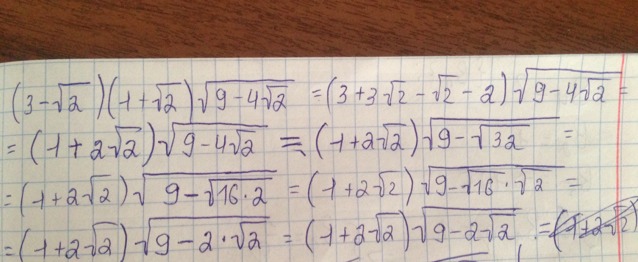 (3-√2)(1+√2)√(9-4√2) = (3+3√2-√2-2)√(9-4√2) =
= (1+2√2)√(9-4√2) = (1+2√2)√(9-√32) =
= (1+2√2)√(9-√(16·2)) = (1+2√2)√(9-√16·√2) =
= (1+2√2)√(9-2·√2) = (1+2√2)√(9-2√2) = (1+2√2)